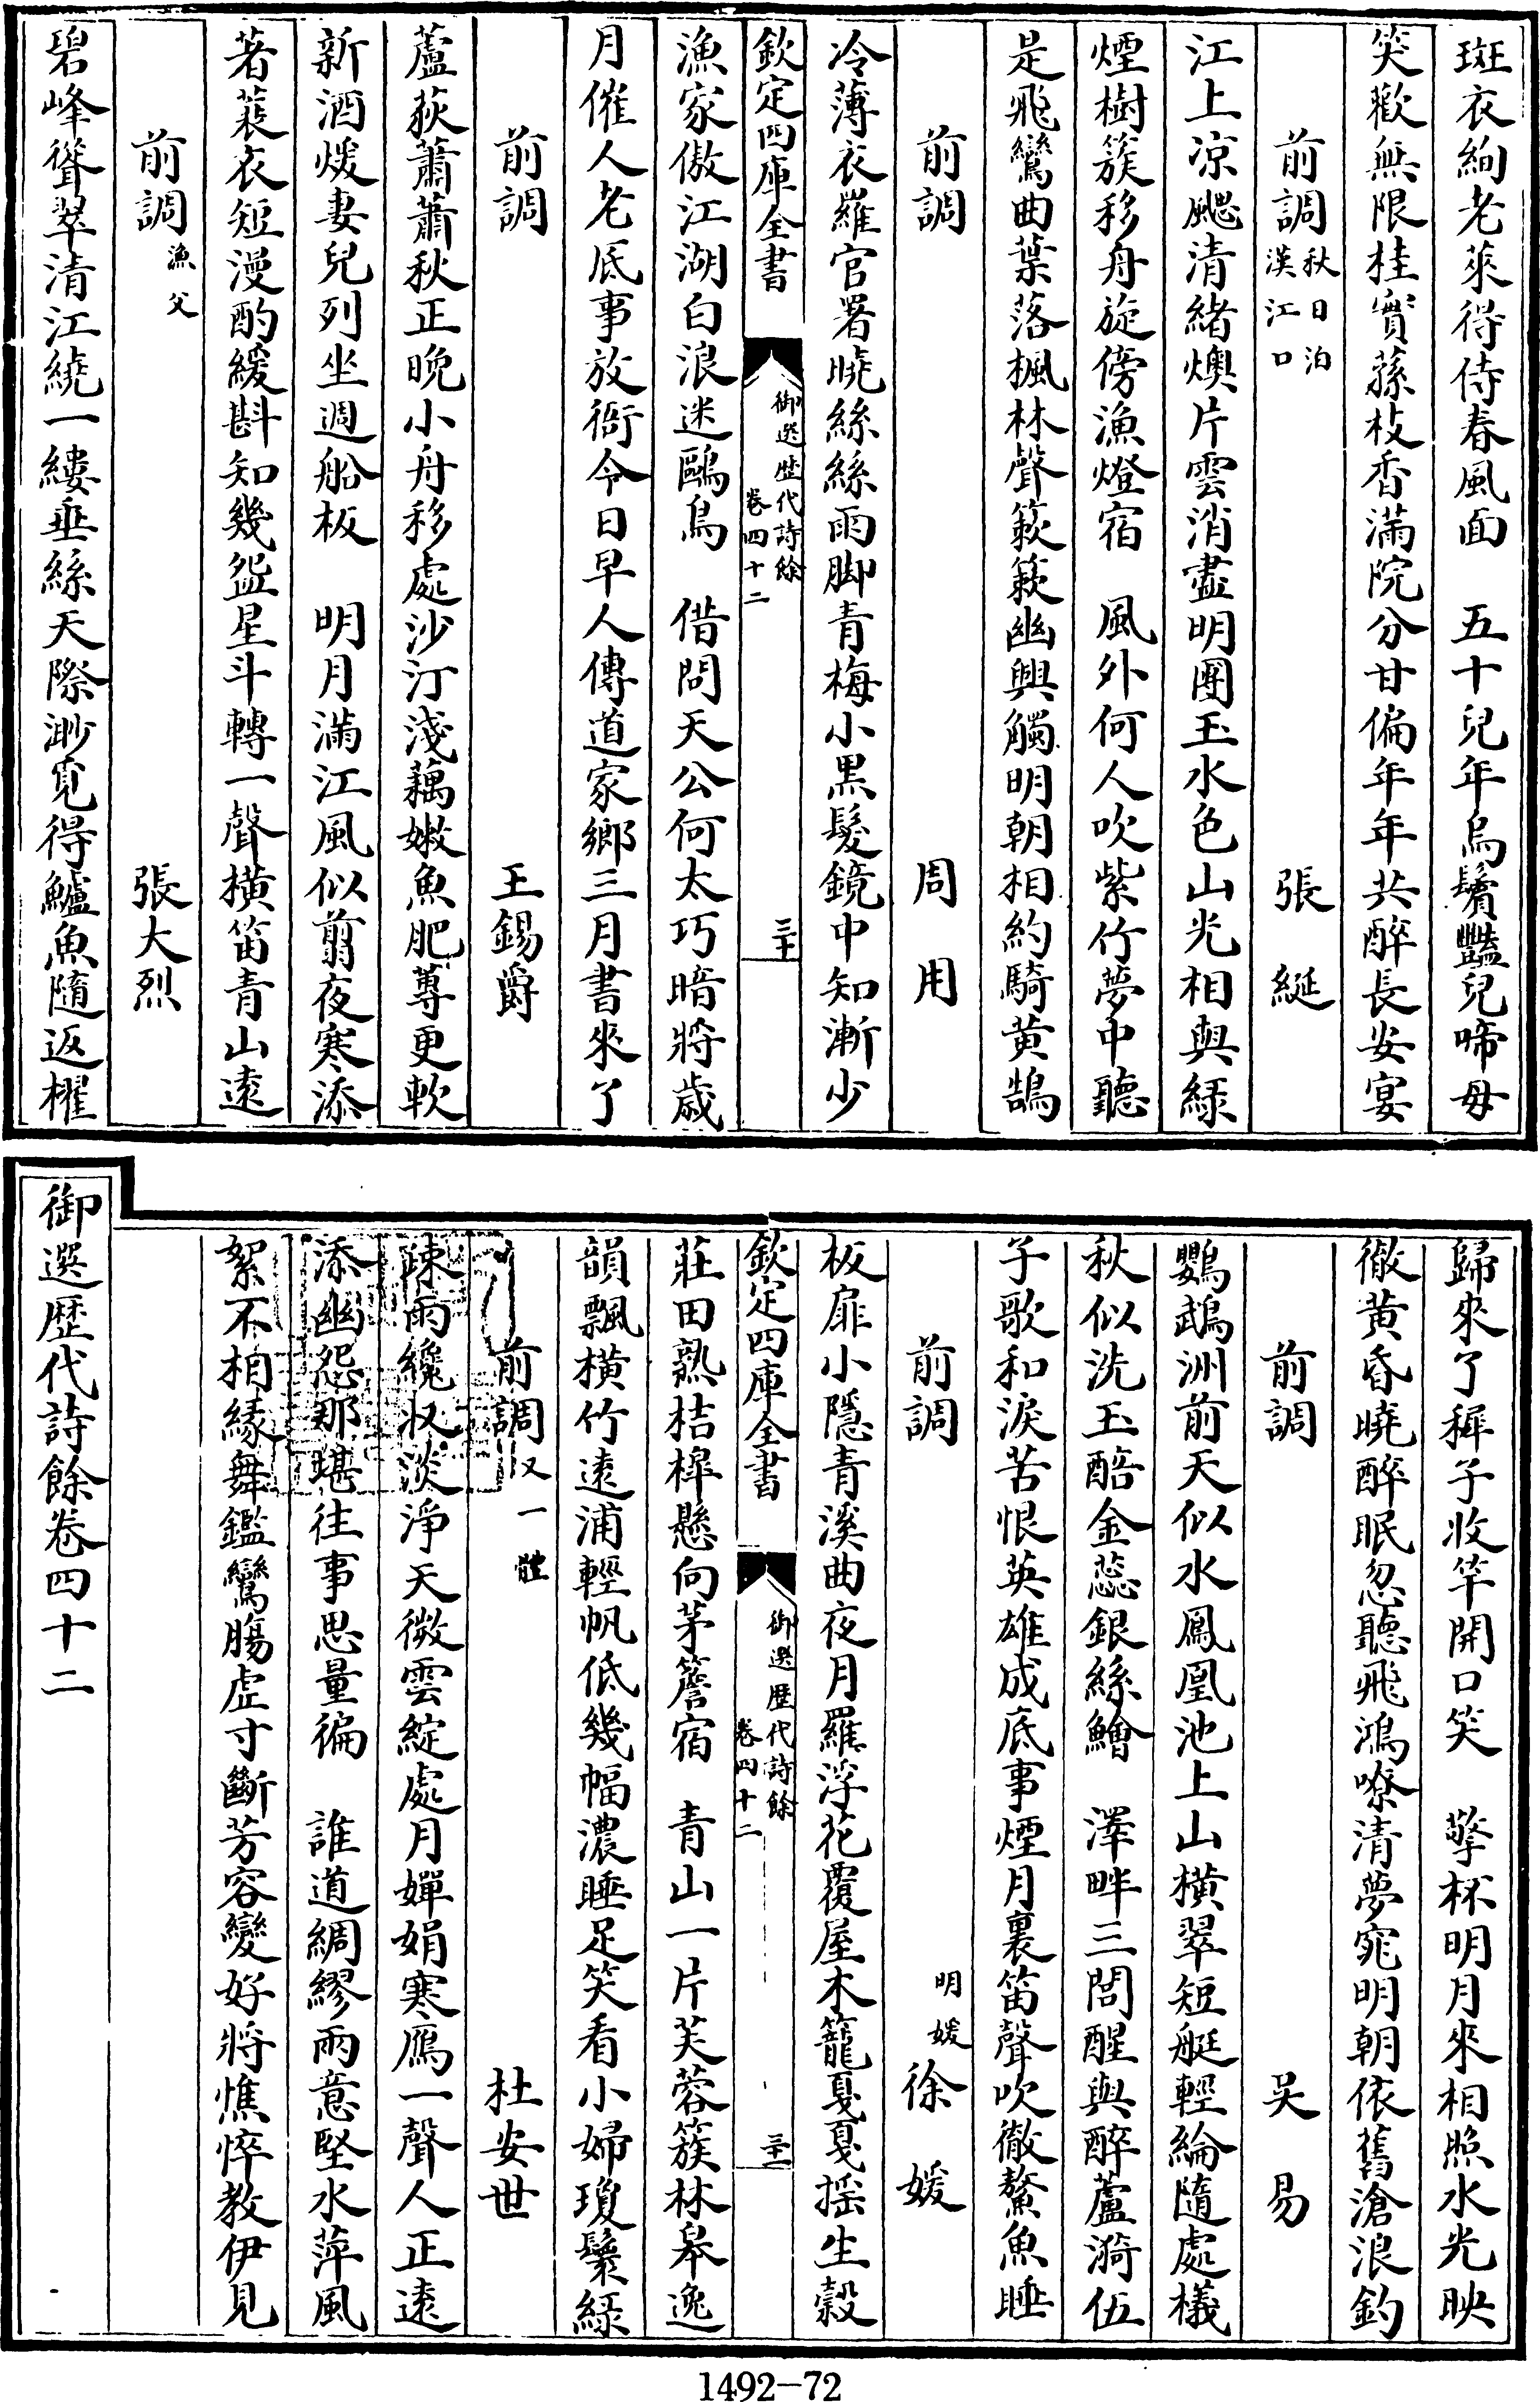 斑衣絢老萊得侍春風面　五十兒年烏鬢豔兒啼母
笑歡無限桂實蓀枝香滿院分甘偏年年共醉長安宴
前調秋日泊漢江口　張綖
江上凉颸清緒燠片雲消盡明團玉水色山光相與緑
煙樹簇移舟旋傍漁燈宿　風外何人吹紫竹夢中聽
是飛鸞曲葉落楓林聲簌簌幽興觸明朝相約騎黄鵠
前調　周用
冷薄衣羅官署曉絲絲雨脚青梅小黒髮鏡中知漸少
欽定四庫全書　御選歴代詩餘卷四十二　三十
漁家傲江湖白浪迷鷗鳥　借問天公何太巧暗將歳
月催人老底事放衙今日早人傳道家鄉三月書來了
前調　王錫爵
蘆荻蕭蕭秋正晚小舟移處沙汀淺藕嫩魚肥蓴更軟
新酒煖妻兒列坐週船板　明月滿江風似翦夜寒添
著蓑衣短漫酌緩斟知幾盌星斗轉一聲横笛青山遠
前調漁父　張大烈
碧峰聳翠清江繞一縷垂絲天際渺覓得鱸魚隨返櫂
歸來了穉子收竿開口笑　擎杯明月來相照水光映
徹黄昏曉醉眠忽聽飛鴻嘹清夢窕明朝依舊滄浪釣
前調　吴易
鸚鵡洲前天似水鳳凰池上山横翠短艇輕綸隨處檥
秋似洗玉醅金蕊銀絲鱠　澤畔三閭醒與醉蘆漪伍
子歌和淚苦恨英雄成底事煙月裏笛聲吹徹鰲魚睡
前調　明媛徐媛
板扉小隱青溪曲夜月羅浮花覆屋木籠戛戛揺生榖
欽定四庫全書　御選歴代詩餘卷四十二　三十一
莊田熟桔槹懸向茅簷宿　青山一片芙蓉簇林皋逸
韻飄横竹遠浦輕帆低幾幅濃睡足笑看小婦瓊鬟緑
前調又一體　杜安世
疎雨纔收淡淨天微雲綻處月嬋娟寒鴈一聲人正遠
添幽怨那堪往事思量徧　誰道綢繆兩意堅水萍風
絮不相縁舞鑑鸞腸虚寸斷芳容變好將憔悴教伊見
御選歴代詩餘卷四十二
1492-72